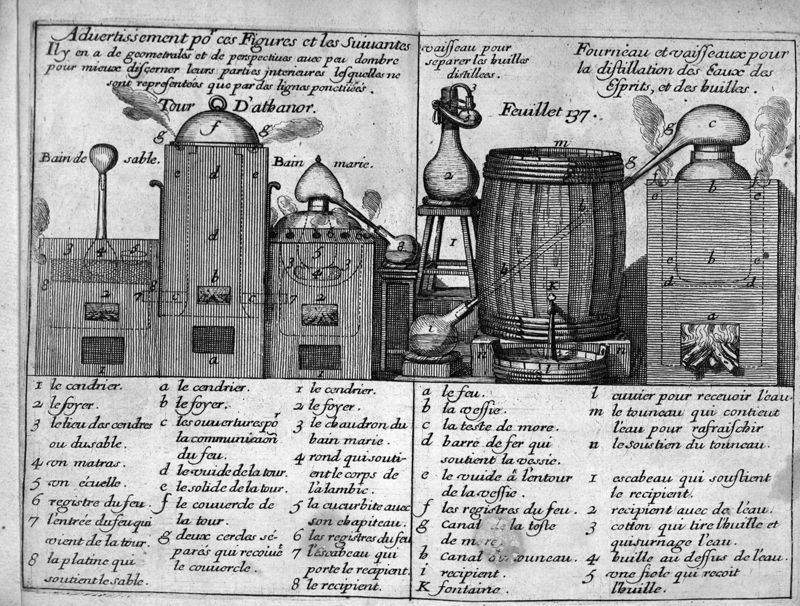 Advertissement po.r ces Figures et les Suivantes
Il y en a de geometrales et de perspectives avec peu dombre
pour mieux discerner leurs parties interieures lesquelles ne
sont representées que par des lignes ponctuées.
Tour D'athanor.
Bain de sable.
Bain marie.
vaisseau pour
separer les huilles
distillees.
Fourneau et vaisseaux pour
la distillation des Eaux des
Esprits, et des huilles.
Feuillet 137.
1 le cendrier.
2 le foyer.
3 le lieu des cendres
ou du sable.
4 vn matras.
5 vn écuelle.
6 registre du feu.
7 l'entrée du feu qui
vient de la tour.
8 la platine qui
soutient le sable.
a le cendrier.
b le foyer.
c les ouvertures po.r
la communicaõn
du feu.
d le vuide de la tour.
e le solide de la tour.
f le couvercle de
la tour.
g deux cercles sé-
parés qui recoivẽ
le couvercle.
1 le cendrier.
2 le foyer.
3 le chaudron du
bain marie.
4 rond qui souti-
ent le corps de
l'alambic.
5 la cucurbite avec
son chapiteau.
6 les registres du feu
7 l'escabeau qui
porte le recipient.
8 le recipient.
a le feu.
b la vessie.
c la teste de more.
d barre de fer qui
soutient la vessie.
e le vuide à l'entour
de la vessie.
f les registres du feu.
g Canal de la teste
de more
h Canal du touneau.
i recipient.
K fontaine.
l cuuier pour receuoir l'eau.
m le touneau qui contient
l'eau pour rafraischir
n le soustien du touneau.
1 escabeau qui soustient
le recipient.
2 recipient auec de l'eau.
3 cotton qui tire l'huille et
qui surnage l'eau.
4 huille au dessus de l'eau.
5 vne fiole qui recoit
l'huille.